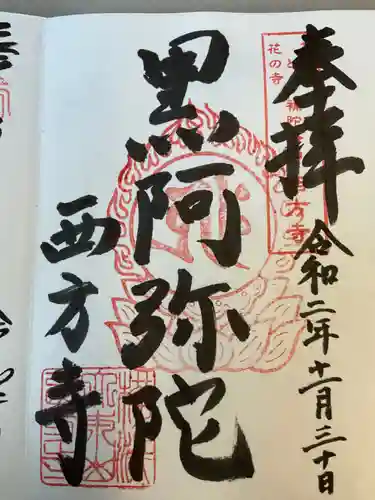 奉拝
令和二年十一月三十日
花の寺
黒阿弥陀
西方寺